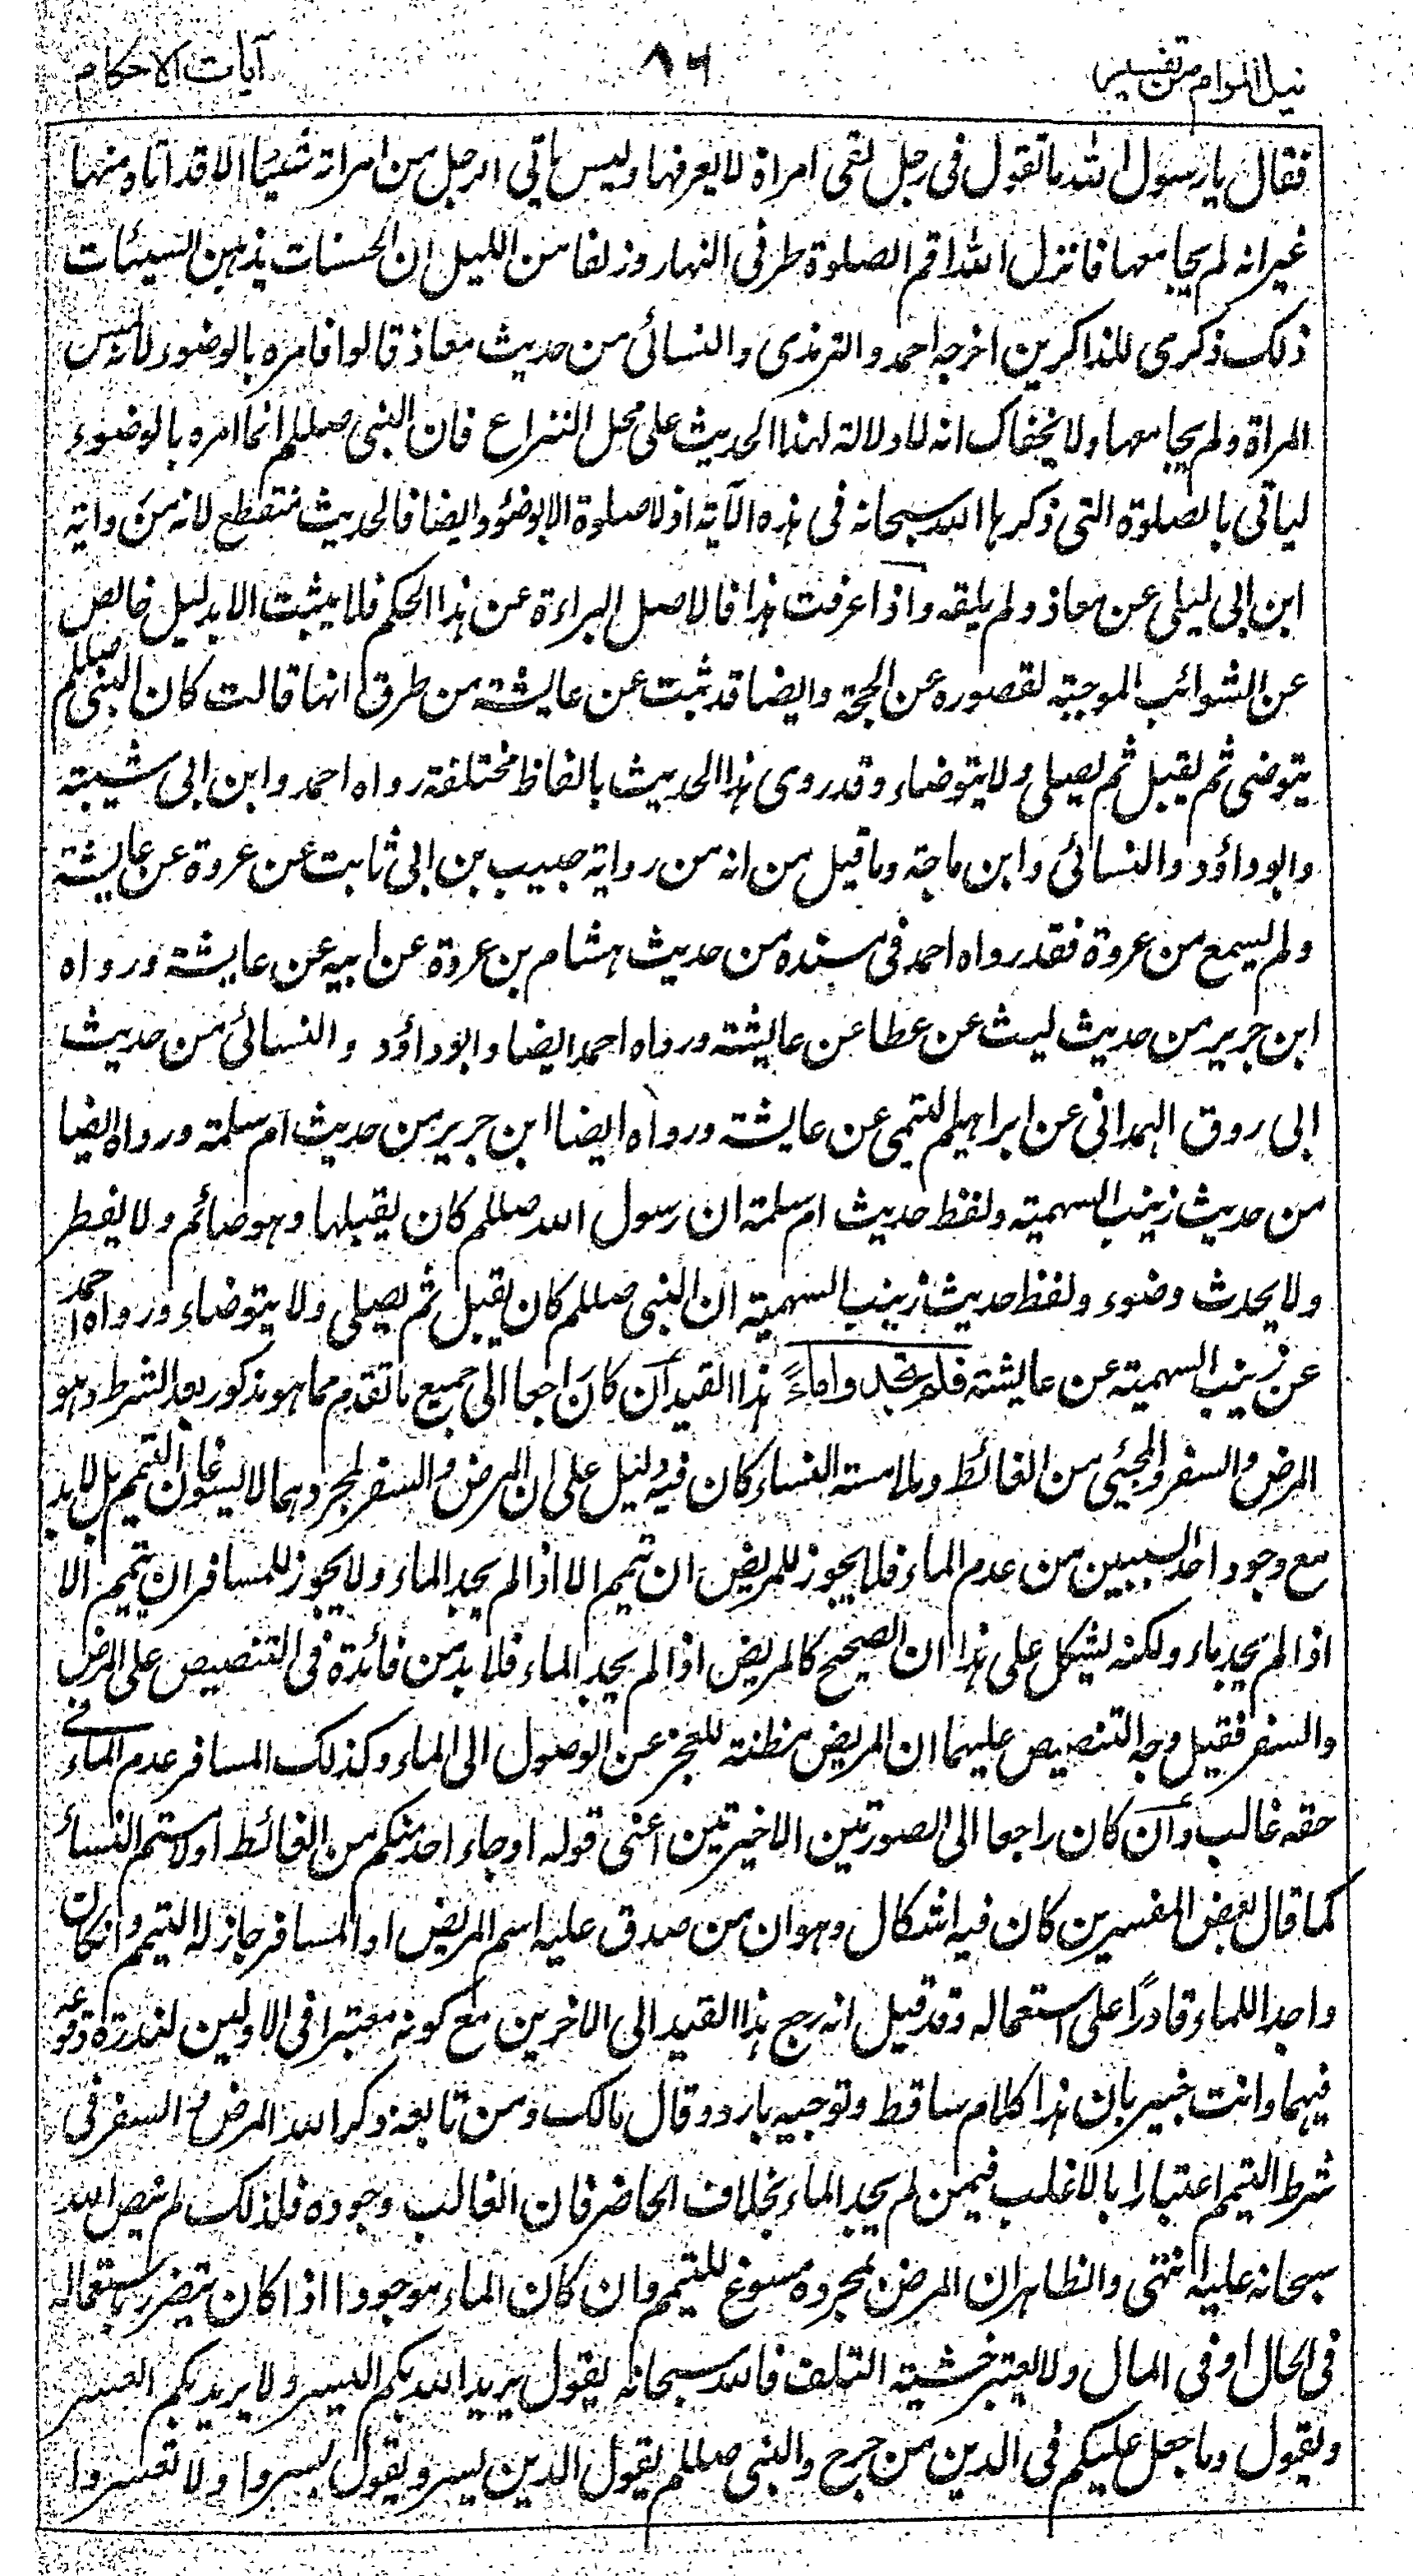 نيل المرام من تفسير ٨٦ آيات الاحكام
فقال يا رسول الله ما تقول فى رجل لقى امراة لا يعرفها وليس ياتى الرجل من امراته شيئا الا قد اتاه منها
غير انه لم يجامعها فانزل الله اقم الصلوة طرفى النهار وزلفا من الليل ان الحسنات يذهبن السيئات
ذلك ذكرى للذاكرين اخرجه احمد والترمذى والنسائى من حديث معاذ قالوا فامره بالوضوء لانه لمس
المراة ولم يجامعها ولا يخفاك انه لا دلالة لهذا الحديث على محل النزاع فان النبى صللم انما امره بالوضوء
لياتى بالصلوة التى ذكرها الله سبحانه فى هذه الآية اذ لا صلوة الا بوضوء وايضا فالحديث منقطع لانه من رواية
ابن ابى ليلى عن معاذ ولم يلقه واذا عرفت هذا فالاصل البراءة عن هذا الحكم فلا يثبت الا بدليل خالص
عن الشوائب الموجبة لقصوره عن الحجة وايضا قد ثبت عن عايشة من طرق انها قالت كان النبى صللم
يتوضى ثم يقبل ثم يصلى ولا يتوضاء وقد روى هذا الحديث بالفاظ مختلفة رواه احمد وابن ابى شيبة
وابو داؤد والنسائى وابن ماجة وما قيل من انه من رواية حبيب بن ابى ثابت عن عروة عن عايشة
ولم يسمع من عروة فقد رواه احمد فى مسنده من حديث هشام بن عروة عن ابيه عن عايشة ورواه
ابن جرير من حديث ليث عن عطا عن عايشة ورواه احمد ايضا وابو داؤد والنسائى من حديث
ابى روق الهمدانى عن ابراهيم التيمى عن عايشة ورواه ايضا ابن جرير من حديث ام سلمة ورواه ايضا
من حديث زينب السهمية ولفظ حديث ام سلمة ان رسول الله صللم كان يقبلها وهو صائم ولا يفطر
ولا يحدث وضوء ولفظ حديث زينب السهمية ان النبى صللم كان يقبل ثم يصلى ولا يتوضاء ورواه احمد
عن زينب السهمية عن عايشة فلم تجدوا ماءً هذا القيد ان كان راجعا الى جميع ما تقدم مما هو مذكور بعد الشرط وهو
المرض والسفر والمجيئ من الغائط وملامسة النساء كان فيه دليل على ان المرض والسفر لمجردهما لا يسوغان التيمم بل لا بد
مع وجود احد السببين من عدم الماء فلا يجوز للمريض ان تيمم الا اذا لم يجد الماء ولا يجوز للمسافر ان يتيمم الا
اذا لم يجد ماء ولكنه يشكل على هذا ان الصحيح كالمريض اذا لم يجد الماء فلا بد من فائدة فى التنصيص على المرض
والسفر فقيل وجه التنصيص عليهما ان المريض مظنة للعجز عن الوصول الى الماء وكذلك المسافر عدم الماء فى
حقه غالب وان كان راجعا الى الصورتين الاخيرتين اعنى قوله او جاء احد منكم من الغائط او لامستم النساء
كما قال بعض المفسرين كان فيه اشكال وهو ان من صدق عليه اسم المريض او المسافر جاز له التيمم وان كان
واجدا للماء قادرًا على استعماله وقد قيل انه رجع هذا القيد الى الاخرين مع كونه معتبرا فى الاولين لندرة وقوعه
فيهما وانت خبير بان هذا كلام ساقط وتوجيه بارد وقال مالك ومن تابعه ذكر الله المرض والسفر فى
شرط التيمم اعتبارا بالاغلب فيمن لم يجد الماء بخلاف الحاضر فان الغالب وجوده فلذلك لم ينص الله
سبحانه عليه انتهى والظاهر ان المرض بمجرده مسوغ للتيمم وان كان الماء موجودا اذا كان يتضرر باستعماله
فى الحال او فى المال ولا يعتبر خشية التلف فالله سبحانه يقول يريد الله بكم اليسر ولا يريد بكم العسر
ويقول وما جعل عليكم فى الدين من حرج والنبى صللم يقول الدين يسر ويقول يسروا ولا تعسروا